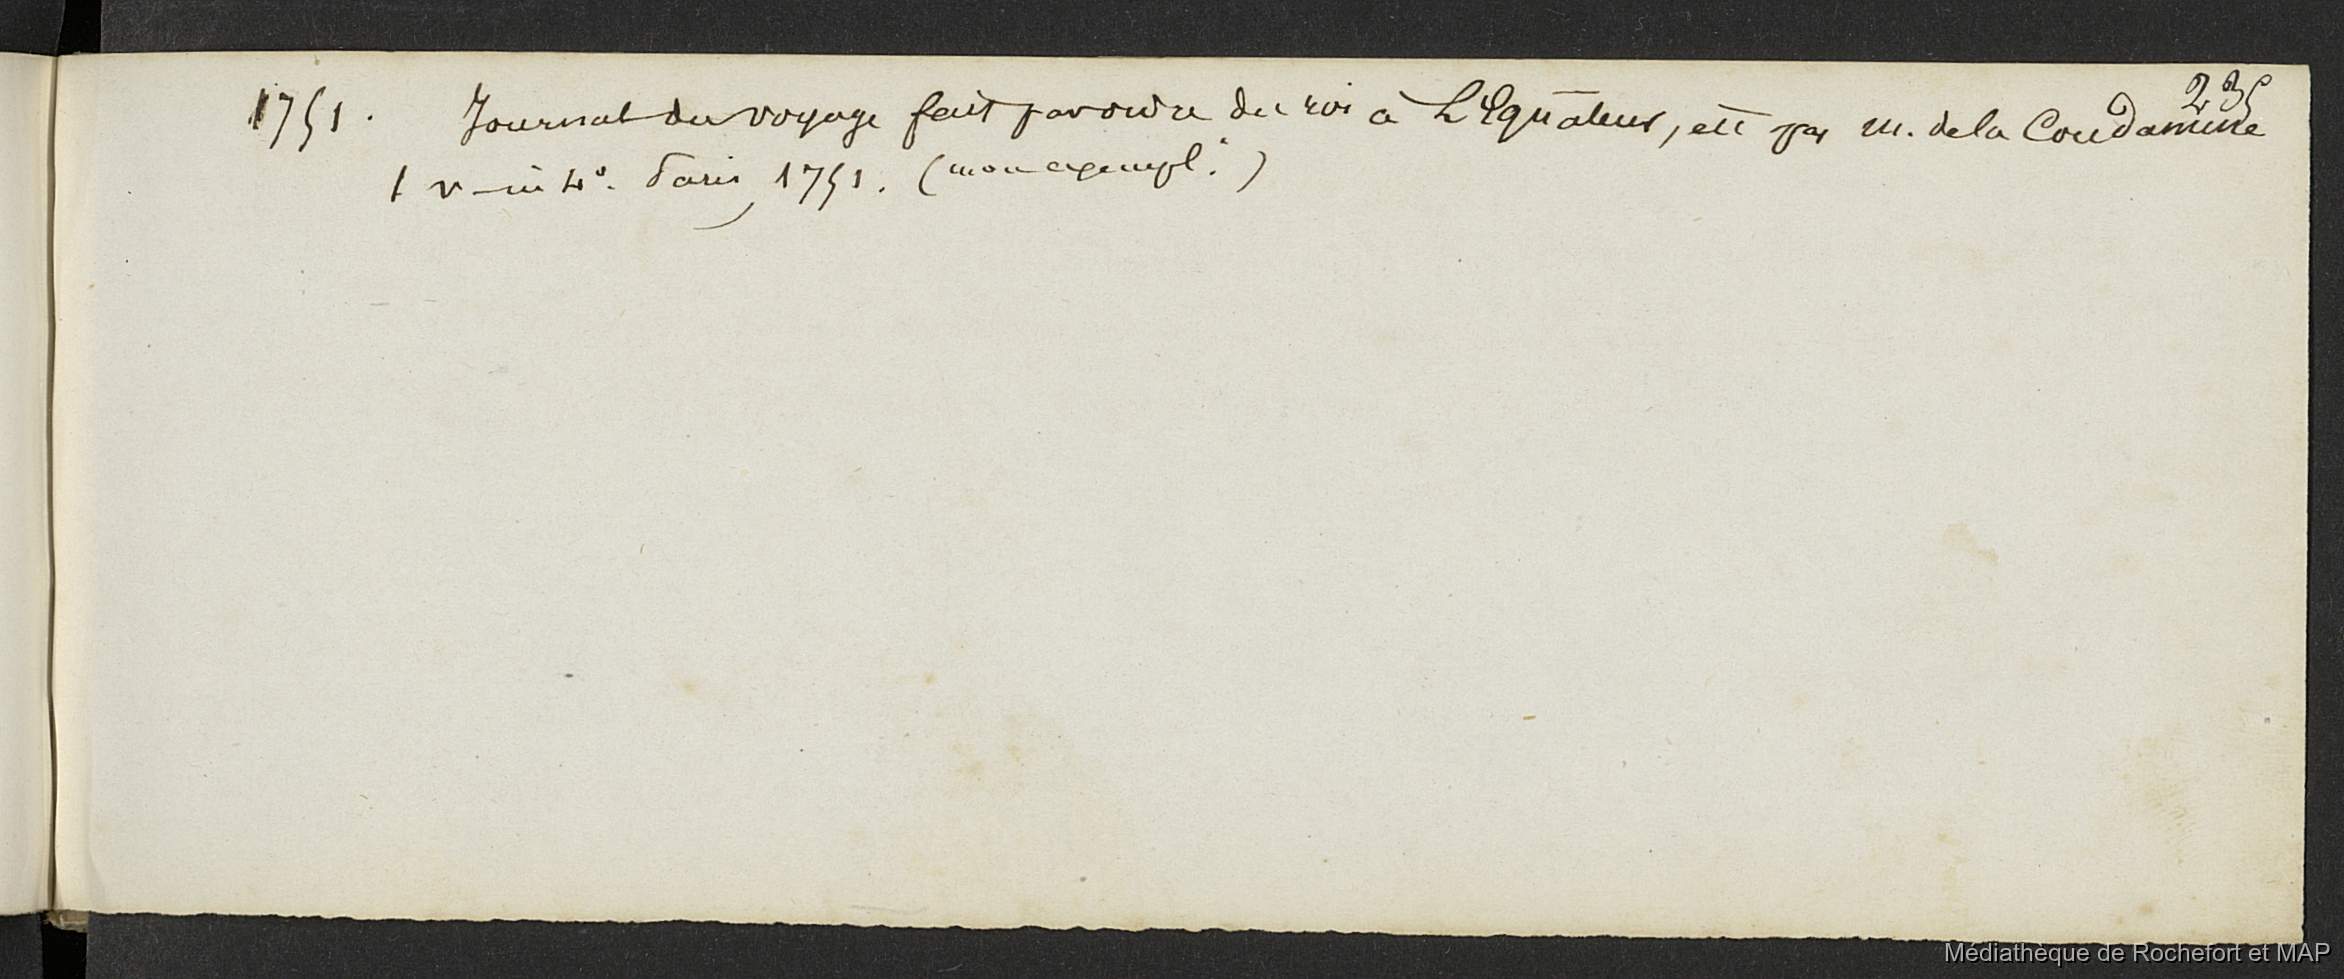 235
1751. Journal du voyage fait par ordre du roi à L'Equateur, etc par M. de la Condamine
1 v in 4°. Paris, 1751. (mon exempl.)
Médiathèque de Rochefort et MAP